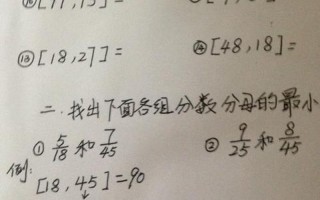 ⑬[18,27]=
⑭[48,18]=
二.找出下面各组分数分母的最小
①5/18和7/45
②9/25和8/45
例:
[18,45]=90